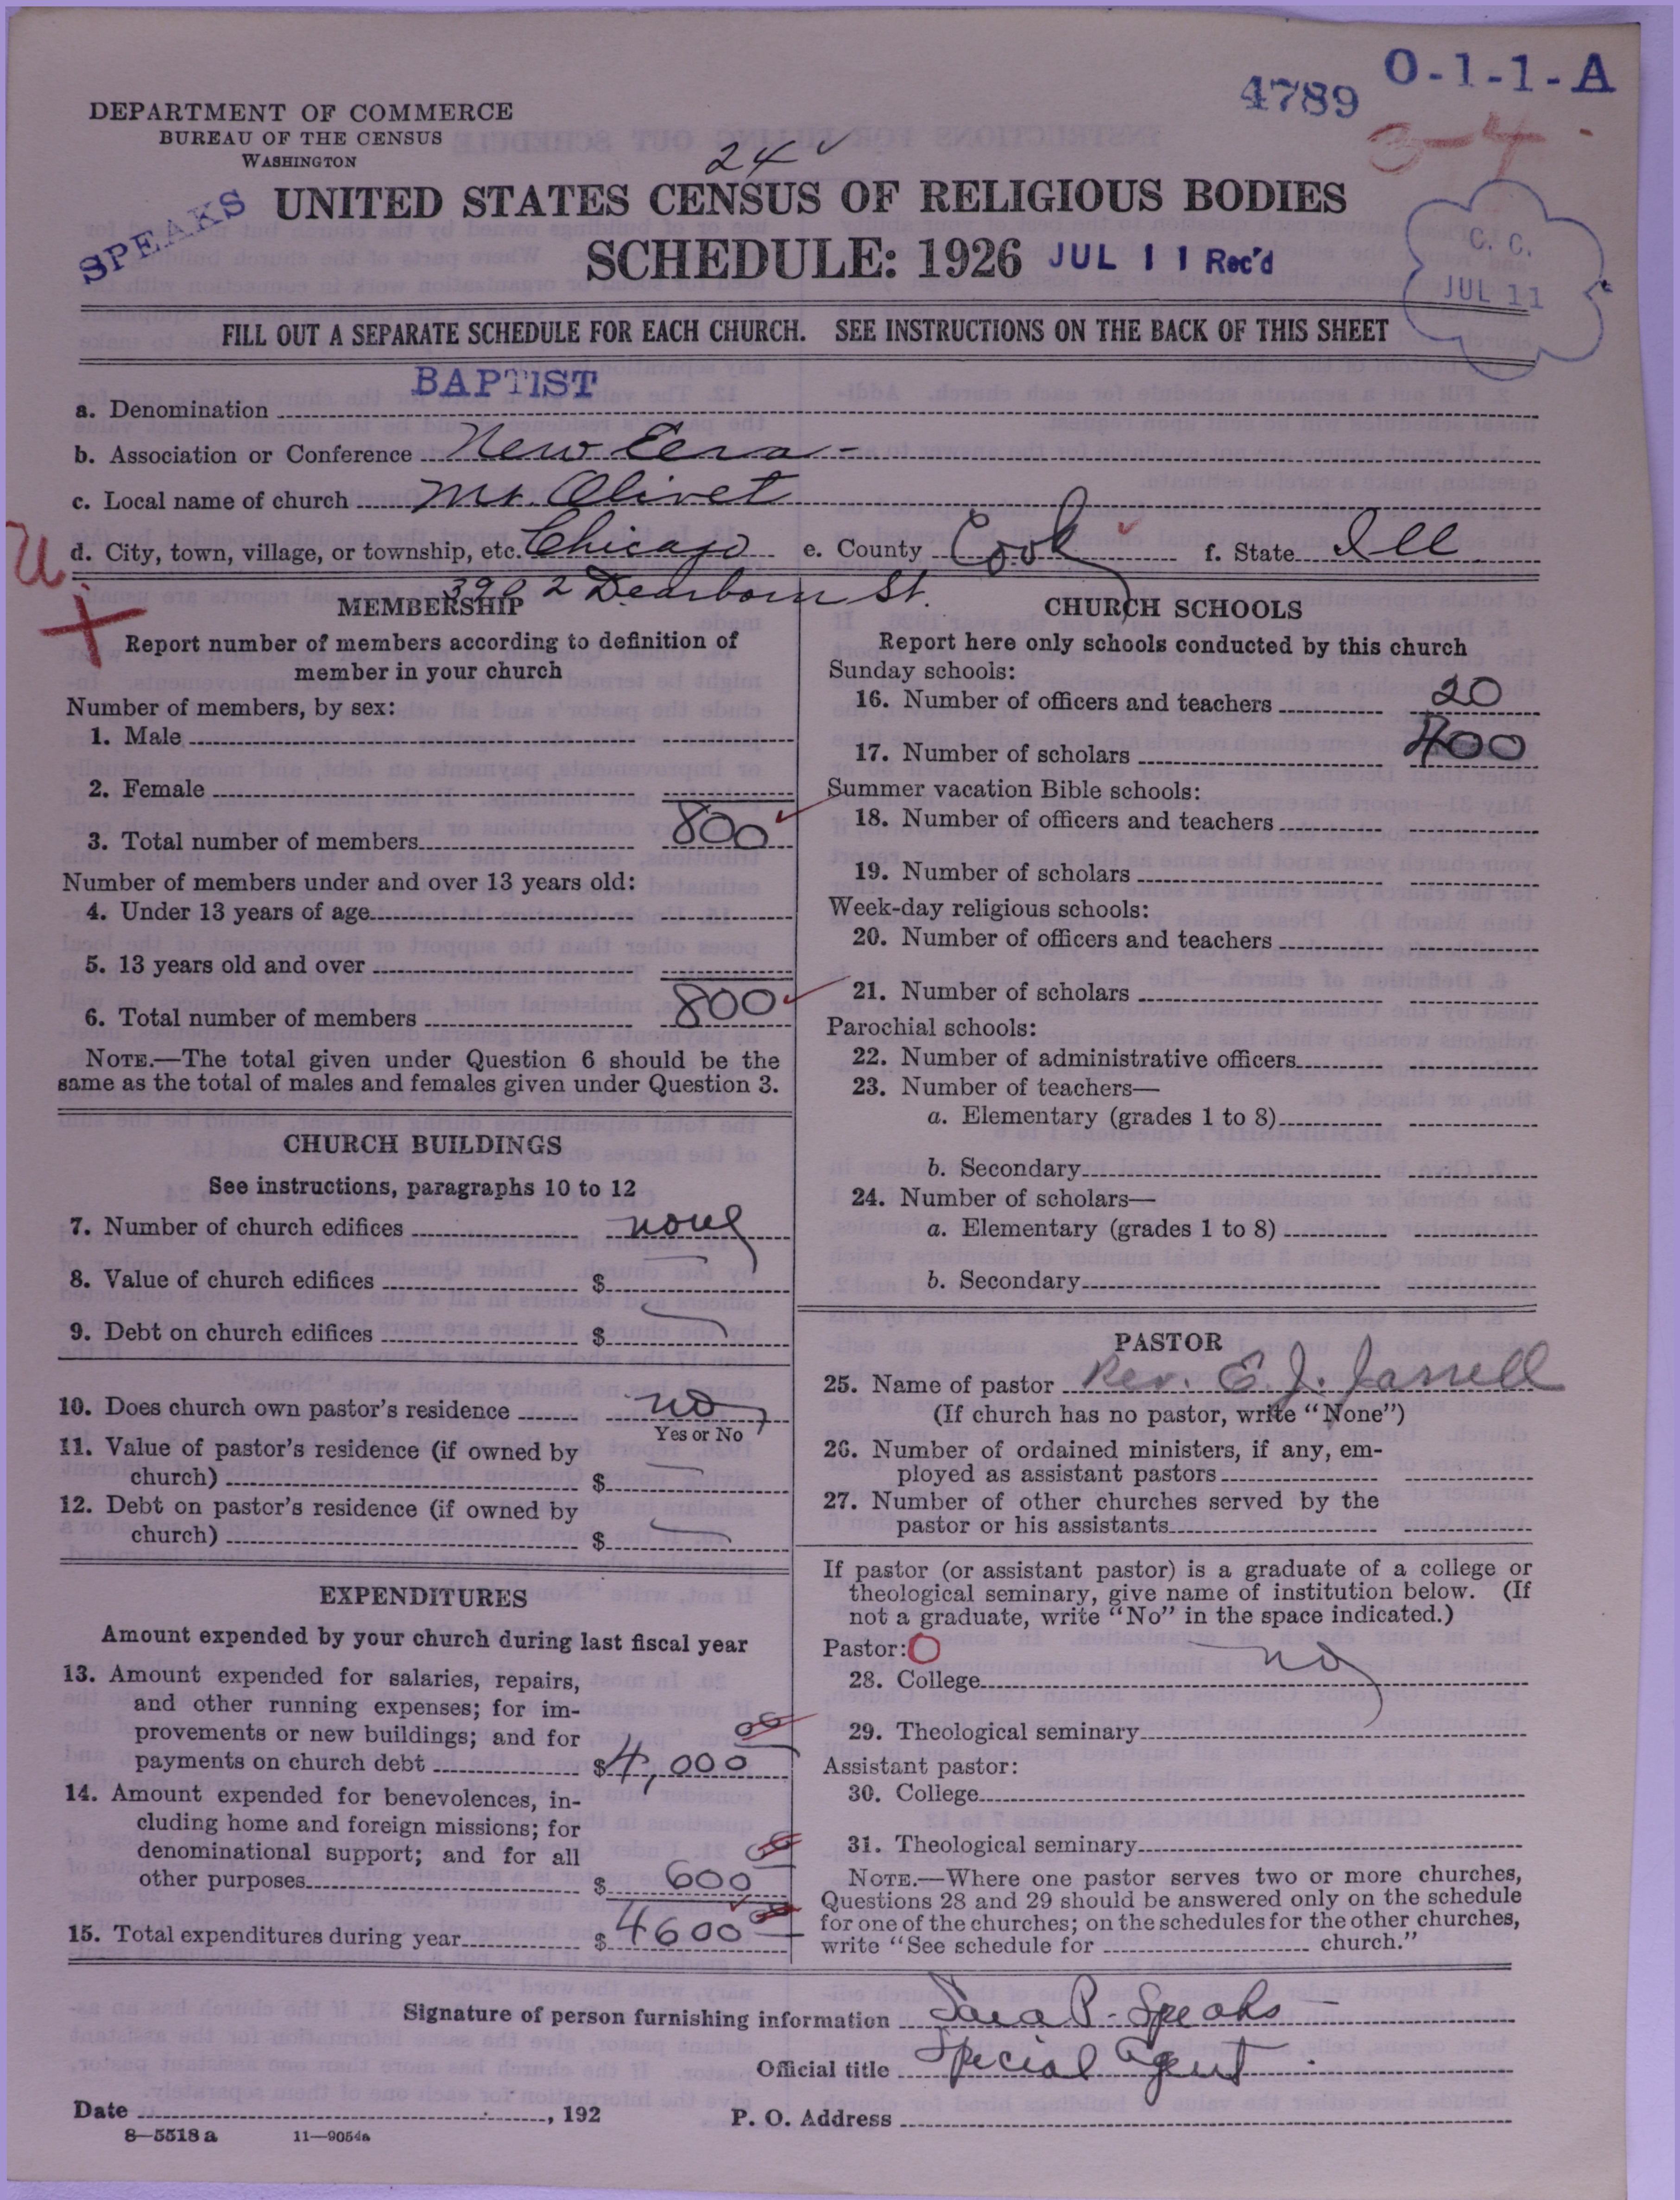 4789 O-1-1-A
DEPARTMENT OF COMMERCE
BUREAU OF THE CENSUS
WASHINGTON
24
SPEAKS
UNITED STATES CENSUS OF RELIGIOUS BODIES
SCHEDULE: 1926 JUL 11 Rec'd
C. C.
JUL 11
FILL OUT A SEPARATE SCHEDULE FOR EACH CHURCH. SEE INSTRUCTIONS ON THE BACK OF THIS SHEET
a. Denomination BAPTIST
b. Association or Conference New Eera
c. Local name of church Mt. Olivet
U
d. City, town, village, or township, etc. Chicago e. County Cook f. State Ill
3902 Dearborn St.
MEMBERSHIP
Report number of members according to definition of
member in your church
Number of members, by sex:
1. Male
2. Female
3. Total number of members 800
Number of members under and over 13 years old:
4. Under 13 years of age
5. 13 years old and over
6. Total number of members 800
NOTE.—The total given under Question 6 should be the
same as the total of males and females given under Question 3.
CHURCH BUILDINGS
See instructions, paragraphs 10 to 12
7. Number of church edifices none
8. Value of church edifices $
9. Debt on church edifices $
10. Does church own pastor's residence no
Yes or No
11. Value of pastor's residence (if owned by
church) $
12. Debt on pastor's residence (if owned by
church) $
EXPENDITURES
Amount expended by your church during last fiscal year
13. Amount expended for salaries, repairs,
and other running expenses; for im-
provements or new buildings; and for
payments on church debt $4,000 00
14. Amount expended for benevolences, in-
cluding home and foreign missions; for
denominational support; and for all
other purposes $ 600 00
15. Total expenditures during year $ 4600 00
CHURCH SCHOOLS
Report here only schools conducted by this church
Sunday schools:
16. Number of officers and teachers 20
17. Number of scholars 400
Summer vacation Bible schools:
18. Number of officers and teachers
19. Number of scholars
Week-day religious schools:
20. Number of officers and teachers
21. Number of scholars
Parochial schools:
22. Number of administrative officers
23. Number of teachers—
a. Elementary (grades 1 to 8)
b. Secondary
24. Number of scholars—
a. Elementary (grades 1 to 8)
b. Secondary
PASTOR
25. Name of pastor Rev. E. J. Jarrell
(If church has no pastor, write "None")
26. Number of ordained ministers, if any, em-
ployed as assistant pastors
27. Number of other churches served by the
pastor or his assistants
If pastor (or assistant pastor) is a graduate of a college or
theological seminary, give name of institution below. (If
not a graduate, write "No" in the space indicated.)
Pastor:
28. College no
29. Theological seminary
Assistant pastor:
30. College
31. Theological seminary
NOTE.—Where one pastor serves two or more churches,
Questions 28 and 29 should be answered only on the schedule
for one of the churches; on the schedules for the other churches,
write "See schedule for church."
Signature of person furnishing information Sara P. Speaks
Official title Special Agent
Date , 192 P. O. Address
8—5518 a 11—9054a